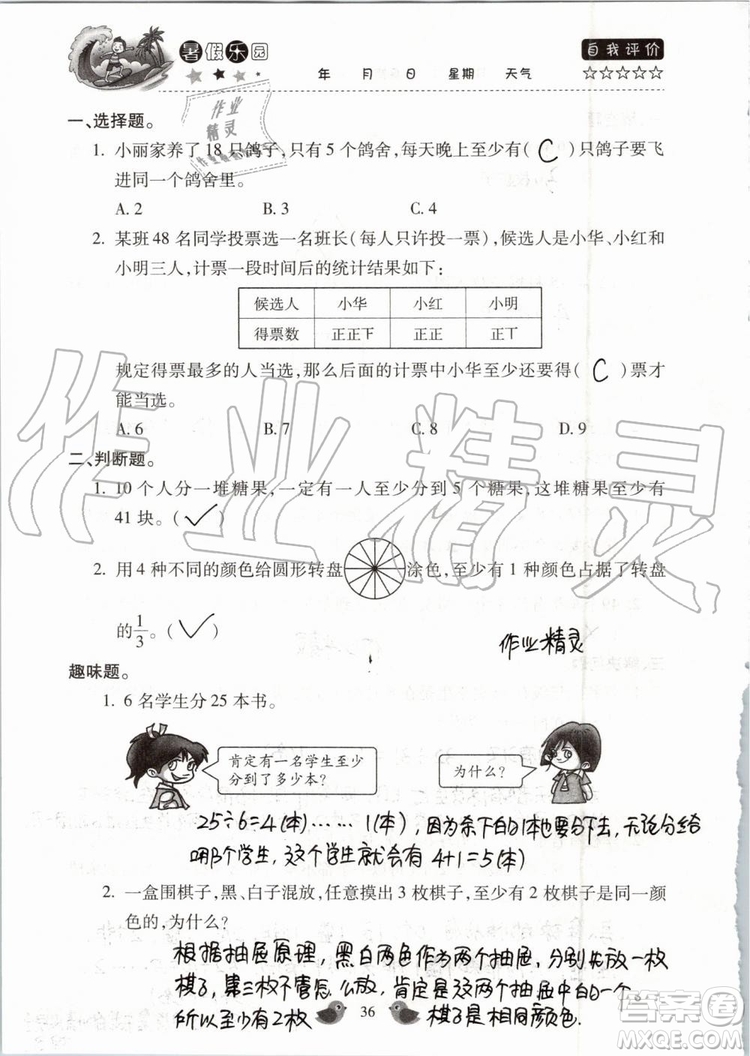 暑假乐园
年 月 日 星期 天气
自我评价
☆☆☆☆☆
一、选择题。
1. 小丽家养了 18 只鸽子,只有 5 个鸽舍,每天晚上至少有( C )只鸽子要飞
进同一个鸽舍里。
A. 2 B. 3 C. 4
2. 某班 48 名同学投票选一名班长(每人只许投一票),候选人是小华、小红和
小明三人,计票一段时间后的统计结果如下:
候选人 小华 小红 小明
得票数 正正下 正正 正丅
规定得票最多的人当选,那么后面的计票中小华至少还要得( C )票才
能当选。
A. 6 B. 7 C. 8 D. 9
二、判断题。
1. 10 个人分一堆糖果,一定有一人至少分到 5 个糖果,这堆糖果至少有
41 块。( ✓ )
2. 用 4 种不同的颜色给圆形转盘涂色,至少有 1 种颜色占据了转盘
的1/3。( ✓ )
作业精灵
趣味题。
1. 6 名学生分 25 本书。
肯定有一名学生至少
分到了多少本?
为什么?
25÷6=4(本)……1(本),因为余下的1本也要分下去,无论分给
哪个学生,这个学生就会有 4+1=5(本)
2. 一盒围棋子,黑、白子混放,任意摸出 3 枚棋子,至少有 2 枚棋子是同一颜
色的,为什么?
根据抽屉原理,黑白两色作为两个抽屉,分别先放一枚
棋子,第三枚不管怎么放,肯定是两个抽屉中的一个
所以至少有2枚棋子是相同颜色.
36
作业精灵
作业精灵
答案圈
MXQE.COM